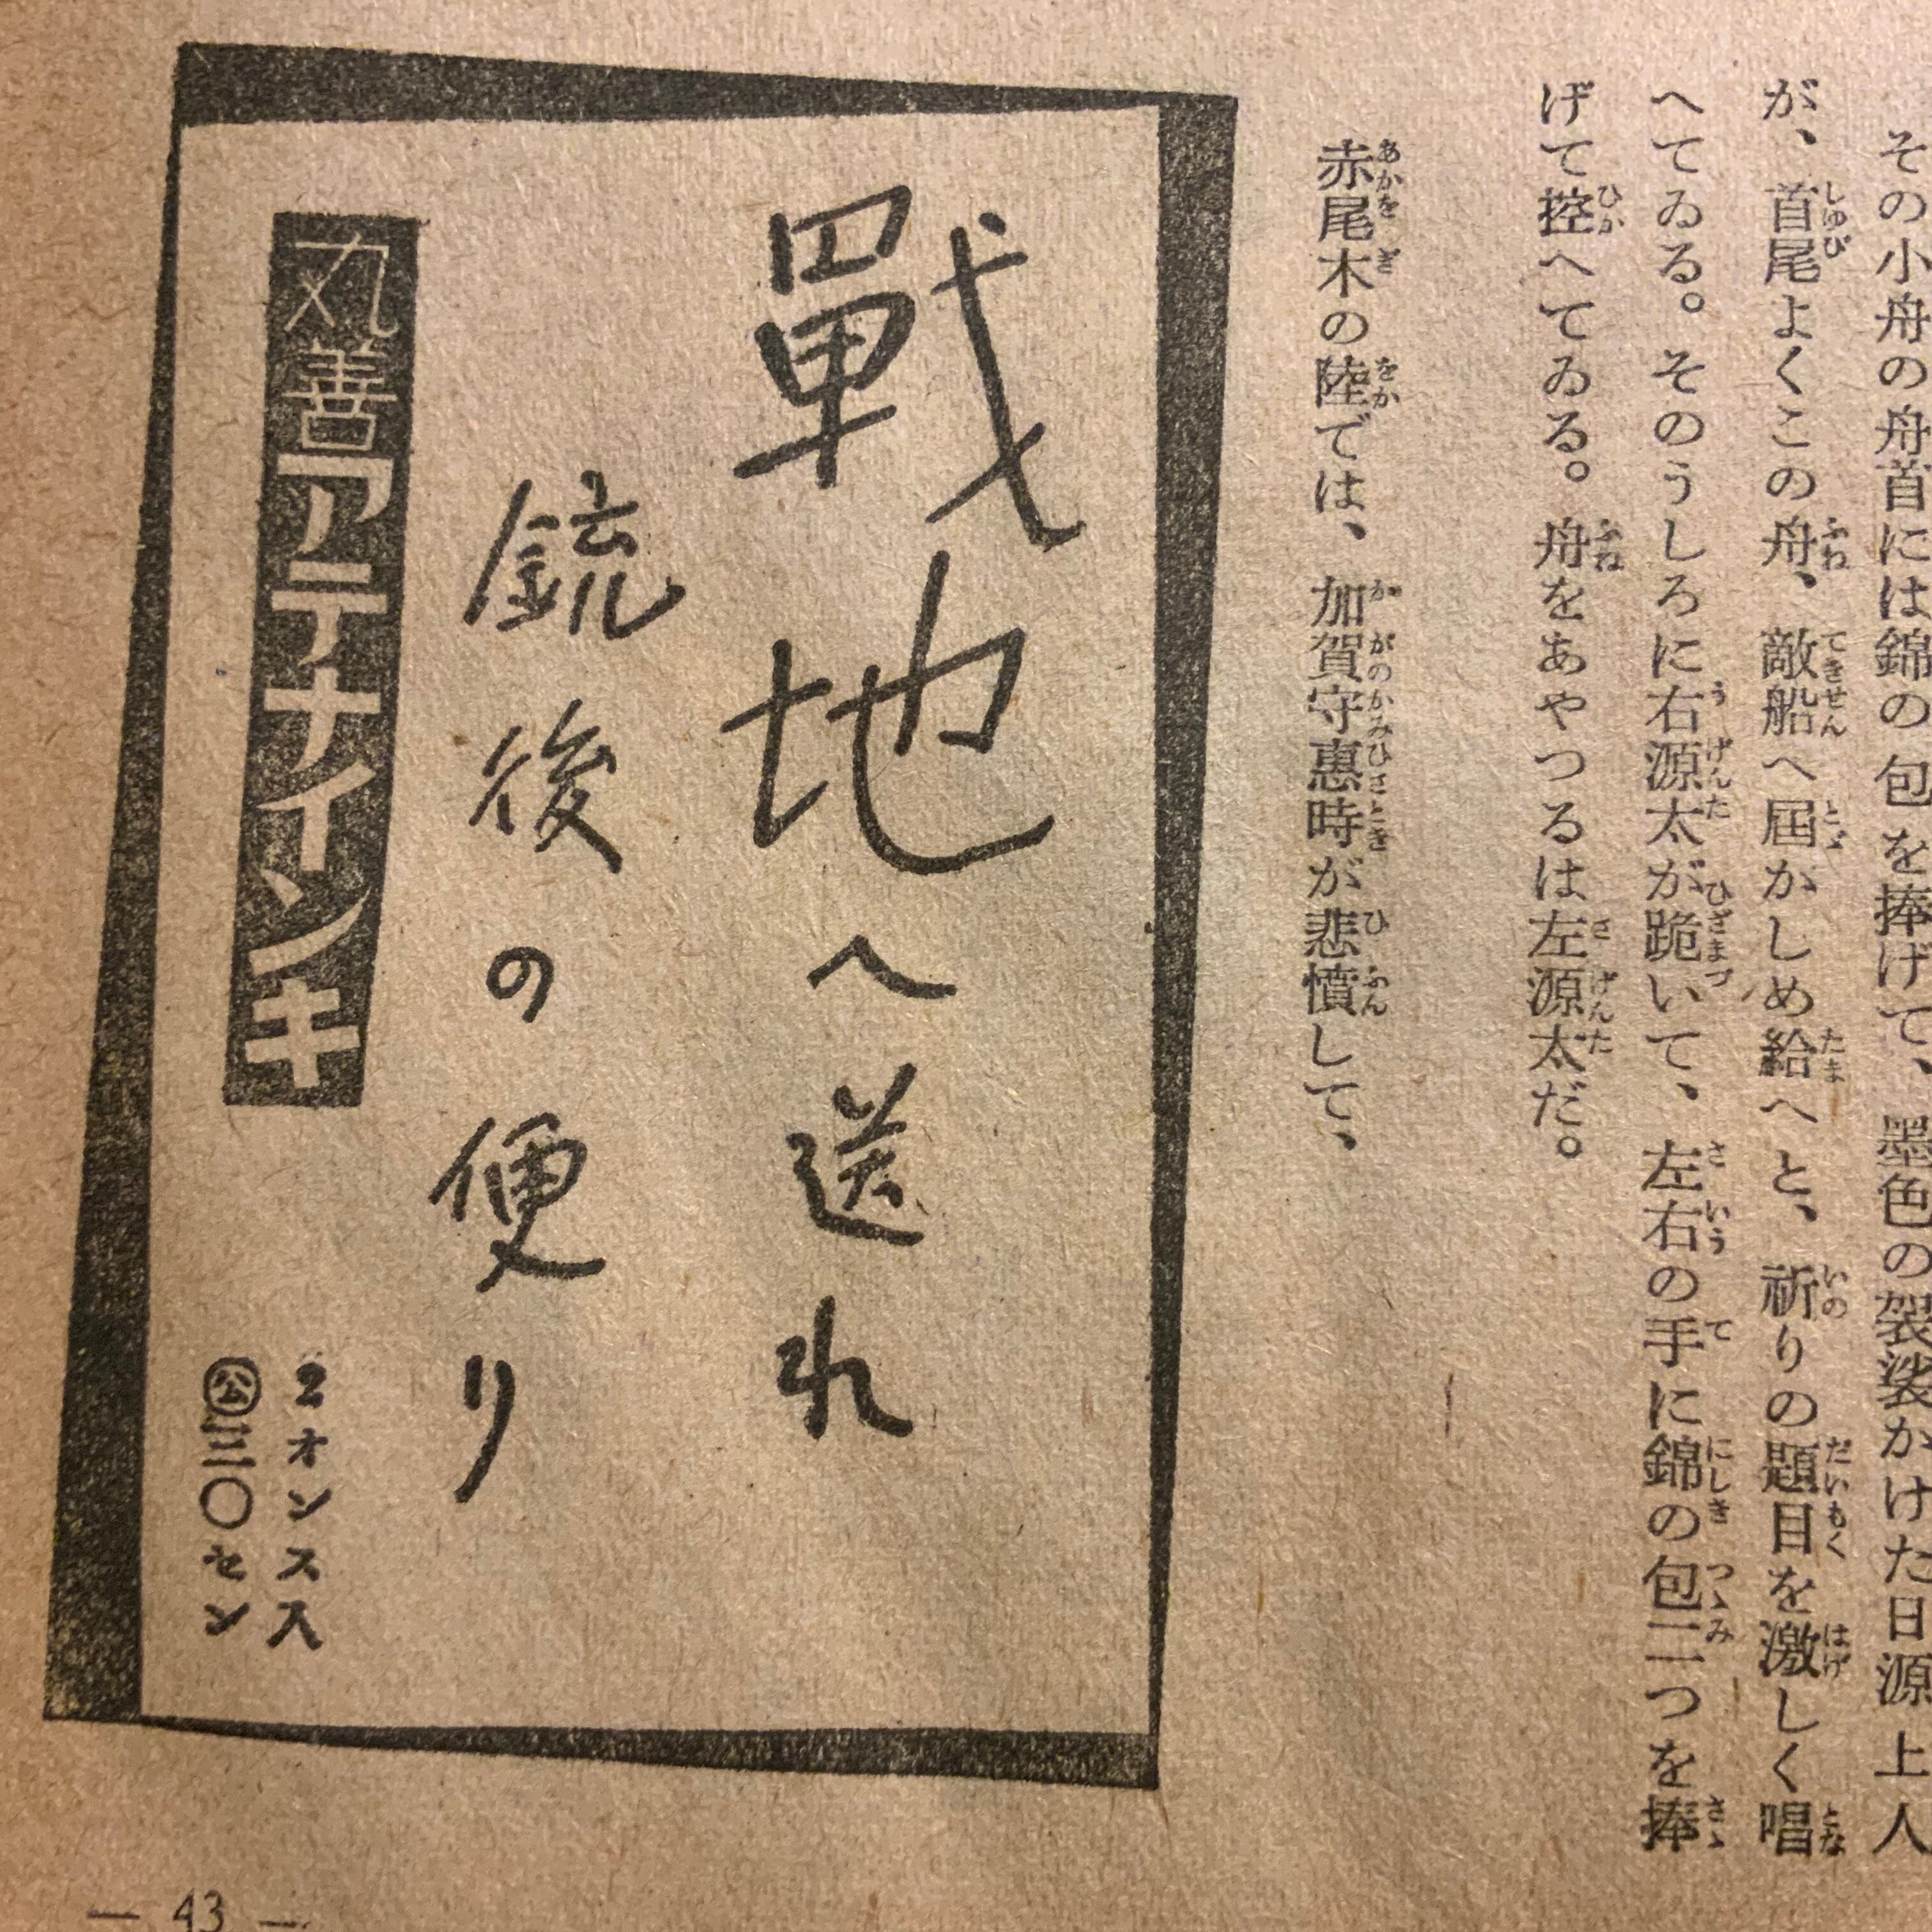 その小舟の舟首には錦の包を捧げて、墨色の袈裟かけた日源上人
が、首尾よくこの舟、敵船へ屆かしめ給へと、祈りの題目を激しく唱
へてゐる。そのうしろに右源太が跪いて、左右の手に錦の包二つを捧
げて控へてゐる。舟をあやつるは左源太だ。
赤尾木の陸では、加賀守惠時が悲憤して、
戰地へ送れ
銃後の便り
丸善アテナインキ
2オンス入
㊡三〇セン
— 43 —